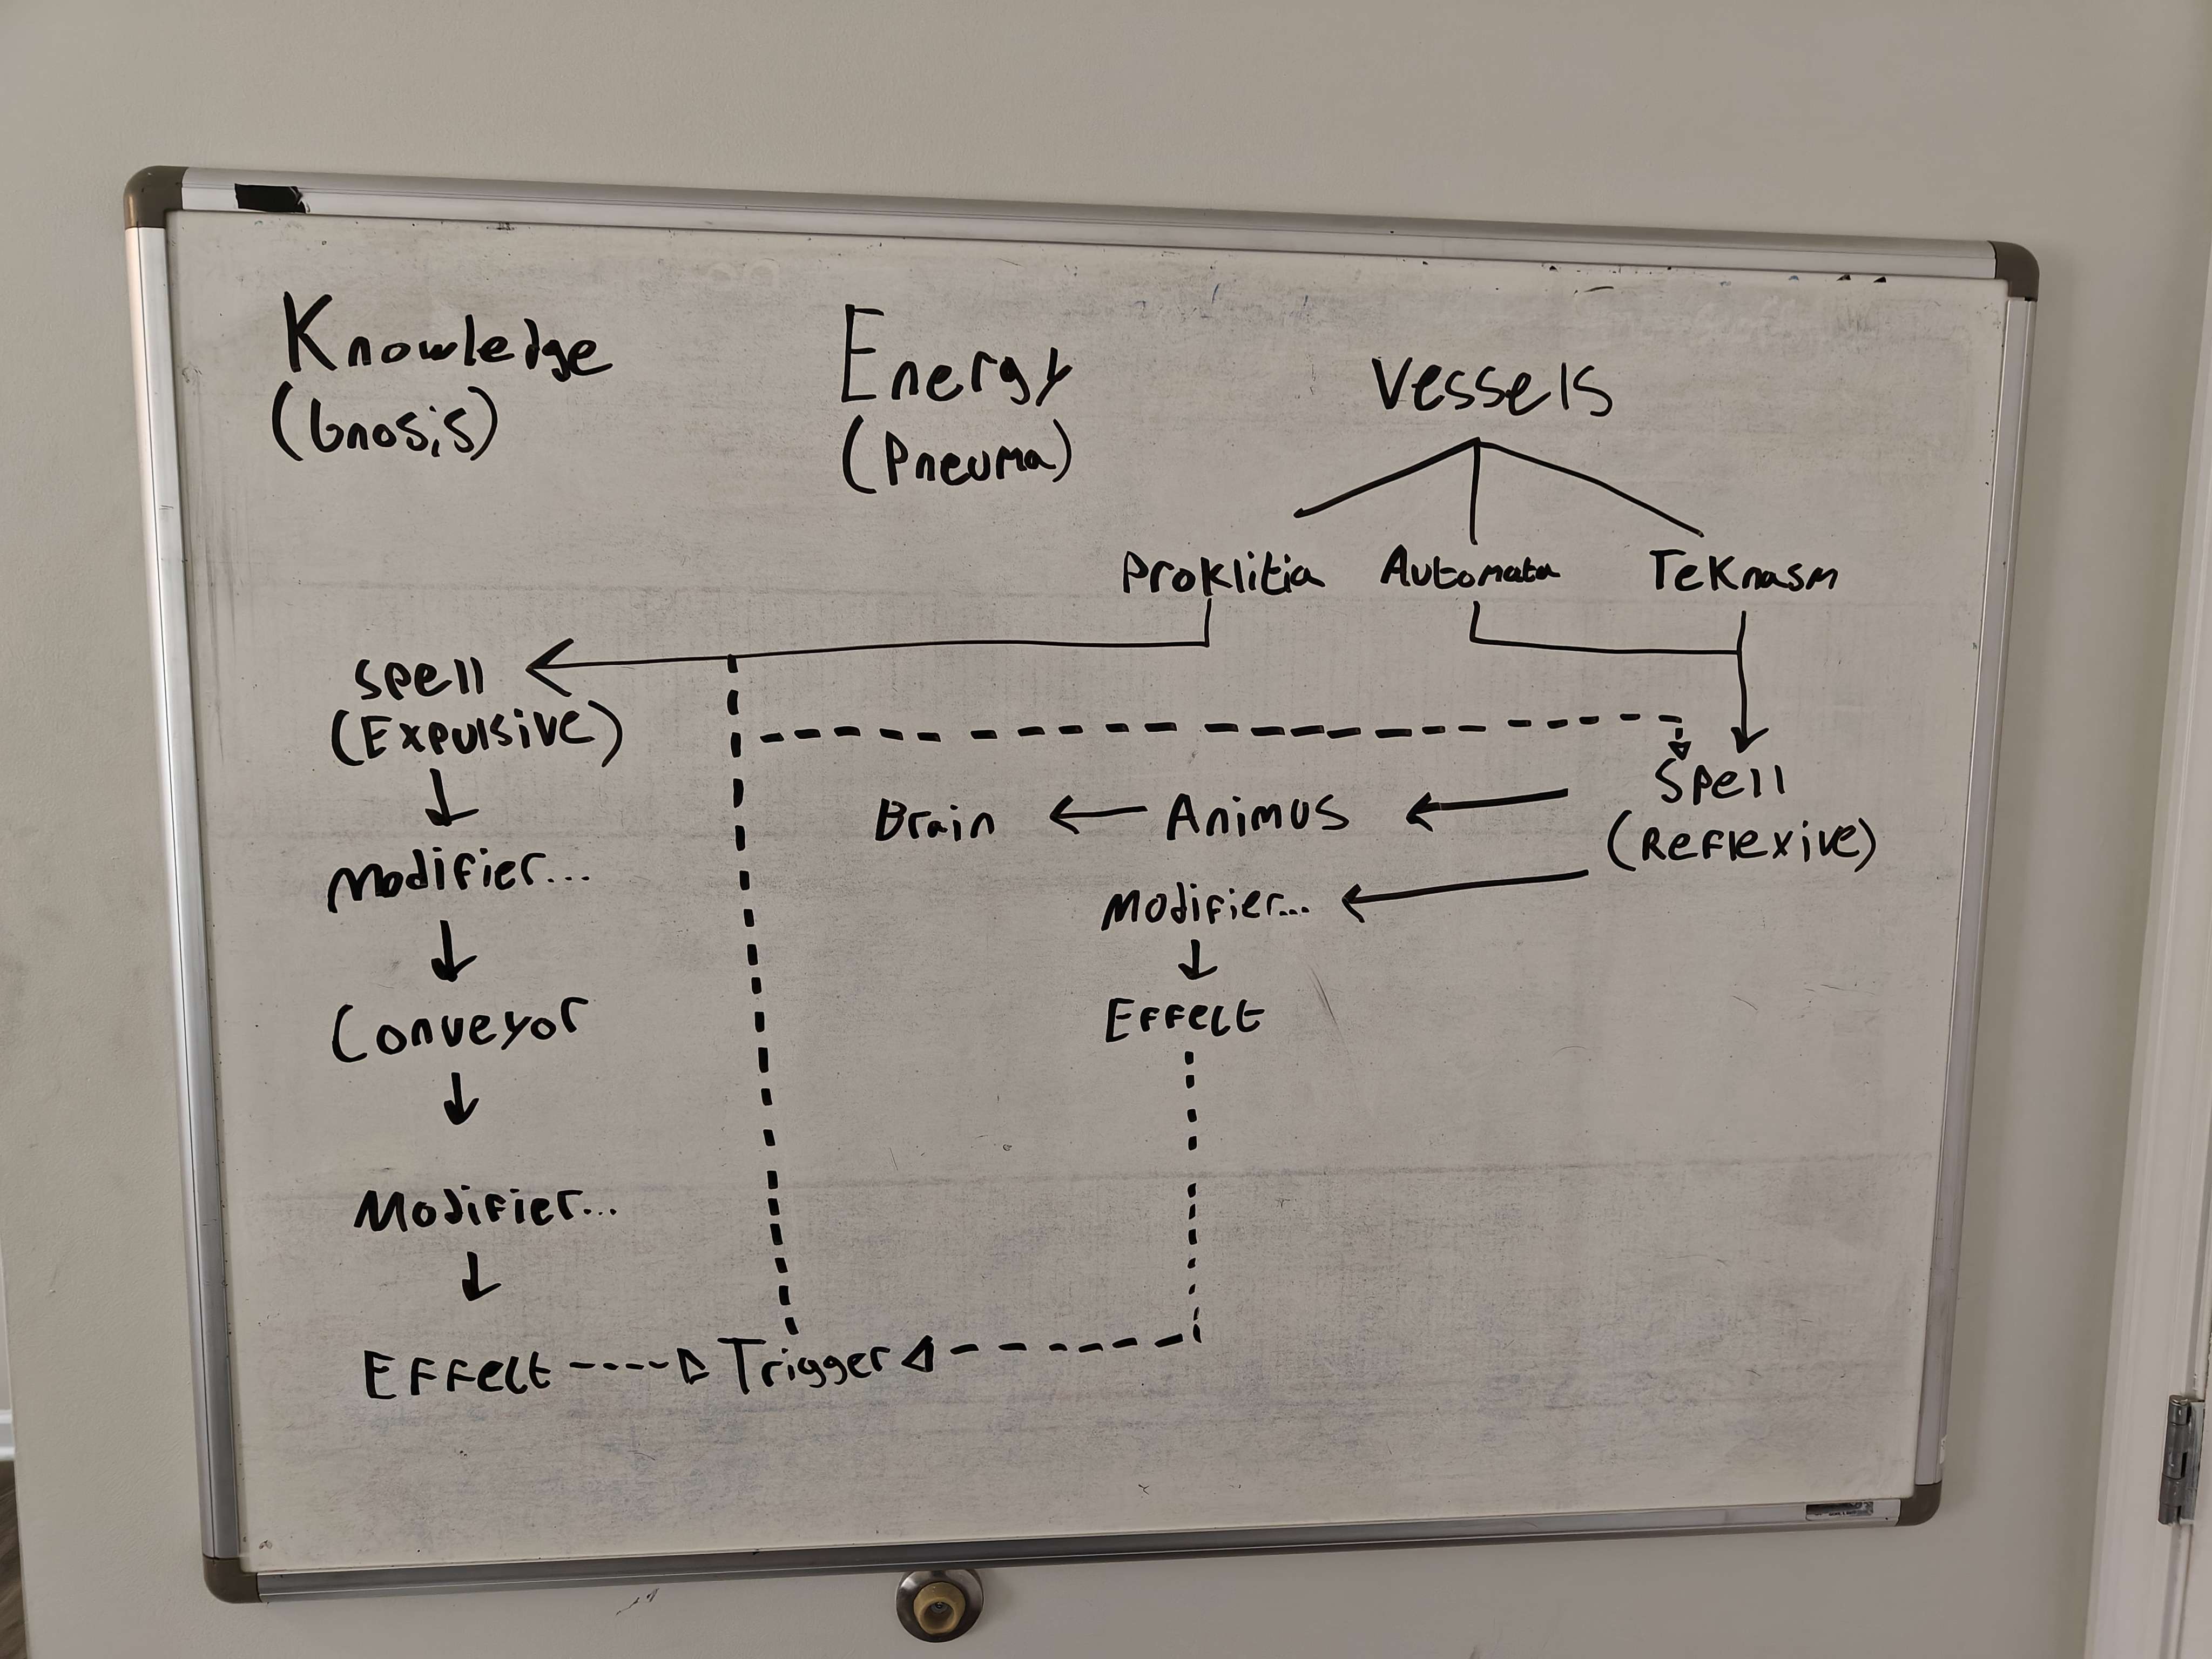 Knowledge
(Gnosis)
Energy
(Pneuma)
Vessels
Proklitia Automata Teknasm
Spell
(Expulsive)
Modifier...
Conveyor
Modifier...
Effect
Trigger
Brain Animus
Spell
(Reflexive)
Modifier...
Effect